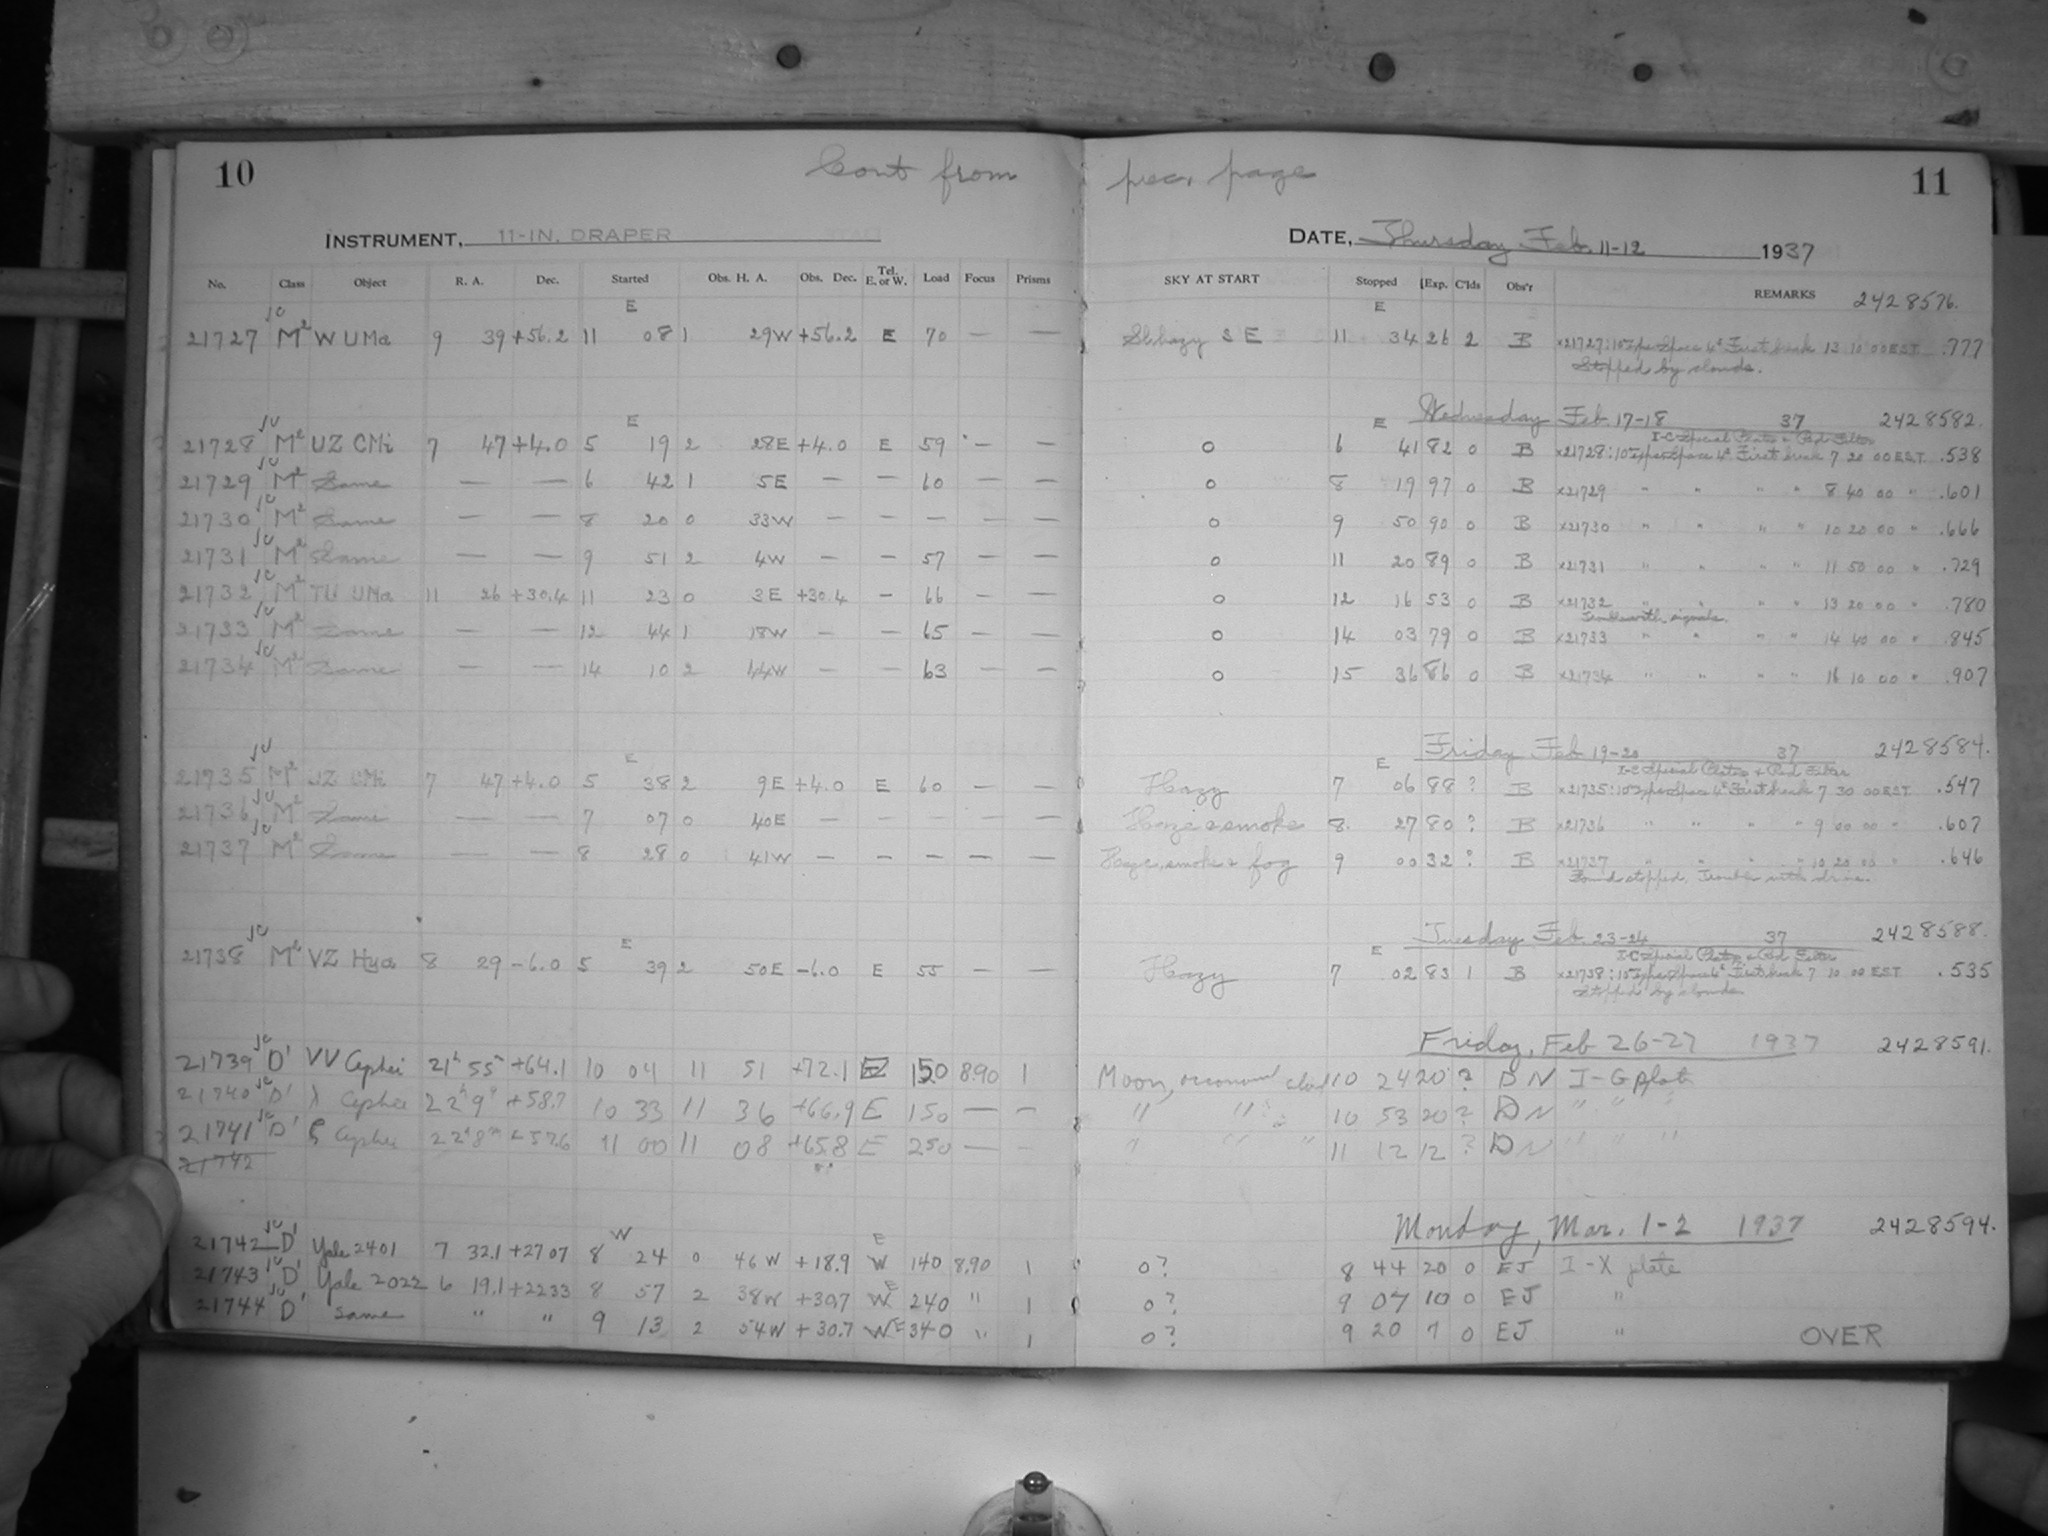 10 Cont from prec. page 11
INSTRUMENT, 11-IN. DRAPER DATE, Thursday Feb. 11-12 1937
No. Class Object R. A. Dec. Started Obs. H. A. Obs. Dec. Tel. E. or W. Load Focus Prisms SKY AT START Stopped Exp. C'lds Obs'r REMARKS 2428576.
E E
21727 M² W UMa 9 39 +56.2 11 08 1 29W +56.2 E 70 — — Sl. hazy S E 11 34 26 2 B x21727: First break 13 10 00 EST .777
Stopped by clouds.
Wednesday Feb. 17-18 37 2428582.
E E I-C Special Plates + Red Filter
21728 M² UZ CMi 7 47 +4.0 5 19 2 28E +4.0 E 59 — — 0 6 41 82 0 B x21728: First break 7 20 00 EST .538
21729 M² Same — — 6 42 1 5E — — 60 — — 0 8 19 97 0 B x21729 " " " " 8 40 00 " .601
21730 M² Same — — 8 20 0 33W — — — — — 0 9 50 90 0 B x21730 " " " " 10 20 00 " .666
21731 M² Same — — 9 51 2 4W — — 57 — — 0 11 20 89 0 B x21731 " " " " 11 50 00 " .729
21732 M² TU UMa 11 26 +30.4 11 23 0 3E +30.4 — 66 — — 0 12 16 53 0 B x21732 " " " " 13 20 00 " .780
Trouble with signals.
21733 M² Same — — 12 44 1 18W — — 65 — — 0 14 03 79 0 B x21733 " " " " 14 40 00 " .845
21734 M² Same — — 14 10 2 44W — — 63 — — 0 15 36 86 0 B x21734 " " " " 16 10 00 " .907
Friday Feb. 19-20 37 2428584.
E E I-C Special Plates + Red Filter
21735 M² UZ CMi 7 47 +4.0 5 38 2 9E +4.0 E 60 — — Hazy 7 06 88 ? B x21735: First break 7 30 00 EST .547
21736 M² Same — — 7 07 0 40E — — — — — Haze & smoke 8 27 80 ? B x21736 " " " " 9 00 00 " .607
21737 M² Same — — 8 28 0 41W — — — — — Haze, smoke & fog 9 00 32 ? B x21737 " " " " 10 20 00 " .646
Found stopped. Trouble with drive.
Tuesday Feb. 23-24 37 2428588.
E E I-C Special Plates + Red Filter
21738 M² VZ Hya 8 29 -6.0 5 39 2 50E -6.0 E 55 — — Hazy 7 02 83 1 B x21738: First break 7 10 00 EST .535
Stopped by clouds.
Friday, Feb 26-27 1937 2428591.
21739 D' VV Cephei 21ʰ 55ᵐ +64.1 10 04 11 51 +72.1 E 150 8.90 1 Moon, cloud 10 24 20 ? DN I-G plate
21740 D' λ Cephei 22ʰ 9ᵐ +58.7 10 33 11 36 +66.9 E 150 — — " " 10 53 20 ? DN " " "
21741 D' ζ Cephei 22ʰ 8ᵐ +57.6 11 00 11 08 +65.8 E 250 — — " " " 11 12 12 ? DN " " "
21742
Monday, Mar. 1-2 1937 2428594.
W E
21742 D' Yale 2401 7 32.1 +27 07 8 24 0 46W +18.9 W 140 8.90 1 0? 8 44 20 0 EJ I-X plate
21743 D' Yale 2022 6 19.1 +22 33 8 57 2 38W +30.7 W E 240 " 1 0? 9 07 10 0 EJ "
21744 D' Same " " 9 13 2 54W +30.7 W E 340 " 1 0? 9 20 7 0 EJ " OVER